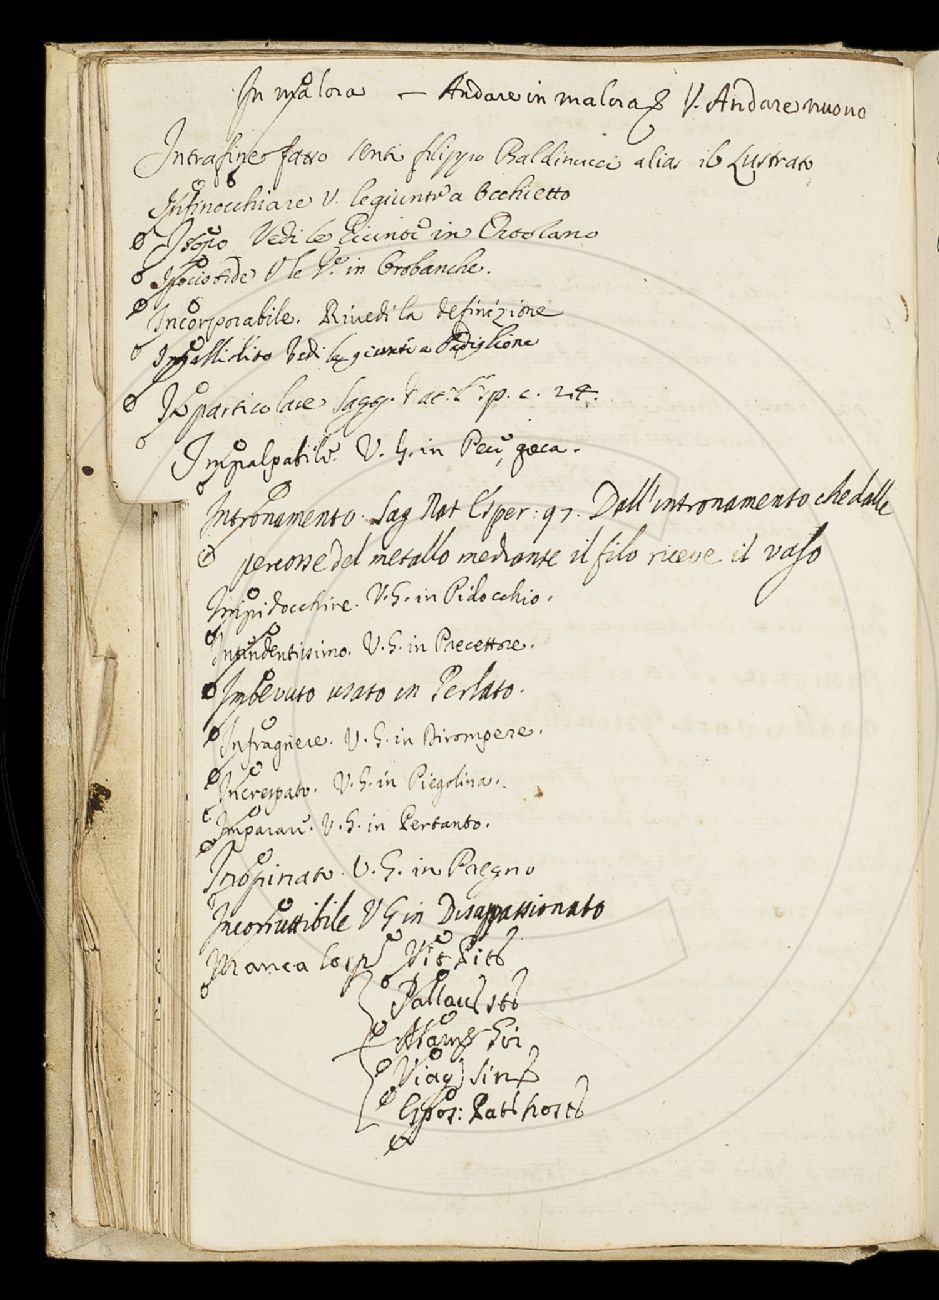 In malora — Andare in malora V. Andare nuovo
Intrafine fatto senti filippo Baldinucci alias il Lustrato
Infinocchiare V. le giunte a Occhietto
Isopo Vedi le Giunte in Ortolano
V. le in Orobanche.
Incorporabile. Rivedi la definizione
Impallidito Vedi le giunte a Padiglione
In particolare Sagg. Nat. Esp. c. 24.
Impalpabile V. G. in
Intronamento. Sag Nat Esper: 97. Dall'intronamento che dalle
percosse del metallo mediante il filo riceve il vaso
Impidocchire. V. G. in Pidocchio.
V. G. in Precettore.
Imbevuto usato in Perlato.
Infragnere. V. G. in Dirompere.
Increspato. V. G. in Piegolina.
Imparare. V. G. in Pertanto.
Inopinato. V. G. in Pregno
Incorruttibile V G in Disappassionato
Manca lo Vit Pitt
Pallav. ist
Viag Sin
Espos: Pat nost